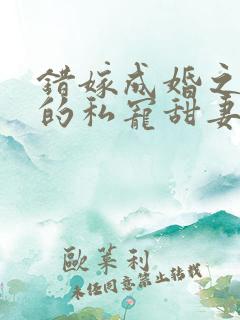 錯嫁成婚之
的私寵甜妻
歐萊利
未任同意禁止轉載